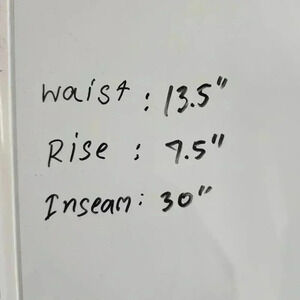 Waist : 13.5"
Rise : 7.5"
Inseam : 30"